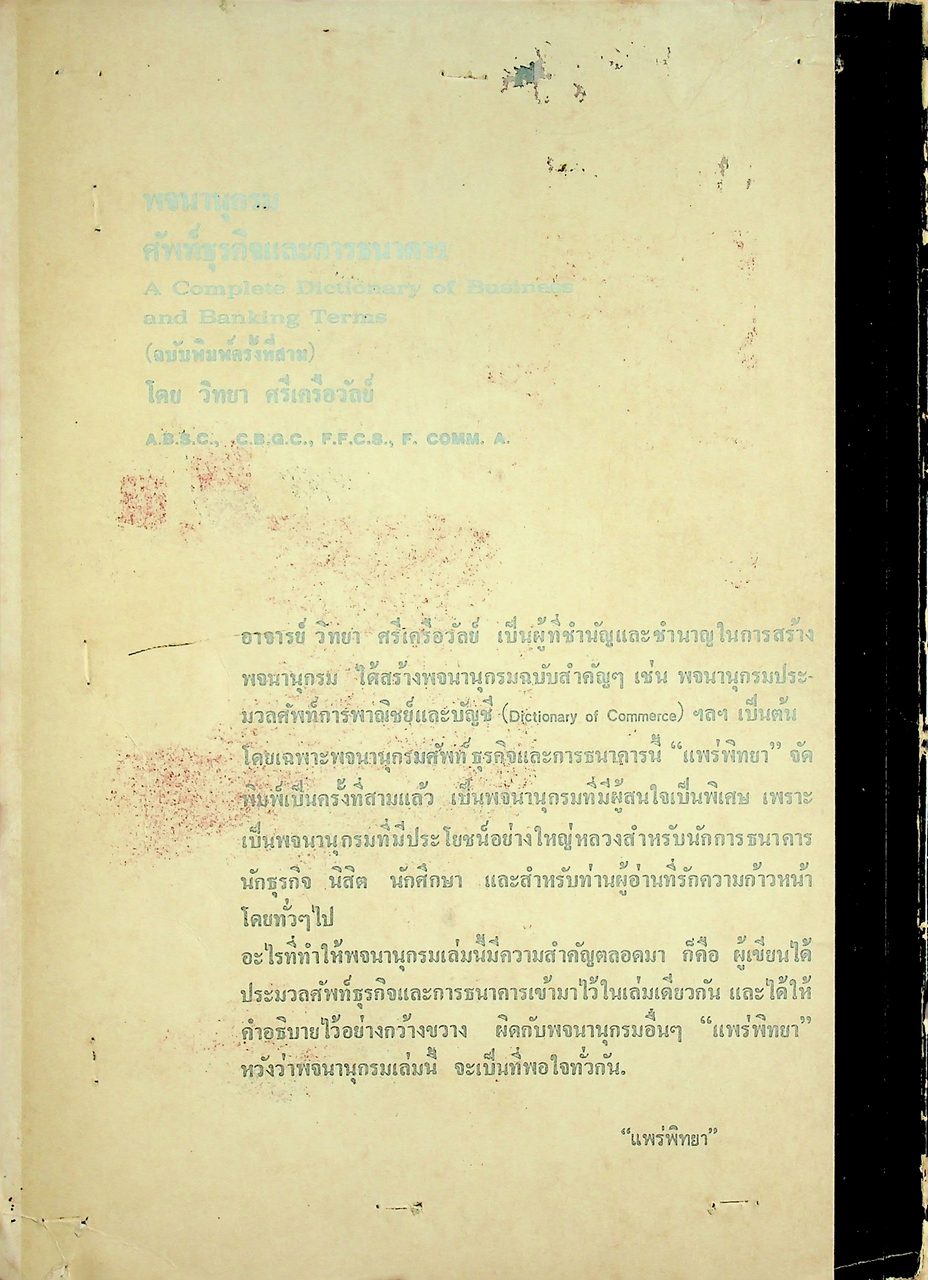 พจนานุกรม
ศัพท์ธุรกิจและการธนาคาร
A Complete Dictionary of Business
and Banking Terms
(ฉบับพิมพ์ครั้งที่สาม)
โดย วิทยา ศรีเครือวัลย์
A.B.S.C., C.B.G.C., F.F.C.S., F. COMM. A.
อาจารย์ วิทยา ศรีเครือวัลย์ เป็นผู้ที่ชำนัญและชำนาญในการสร้าง
พจนานุกรม ได้สร้างพจนานุกรมฉบับสำคัญๆ เช่น พจนานุกรมประ-
มวลศัพท์การพาณิชย์และบัญชี (Dictionary of Commerce) ฯลฯ เป็นต้น
โดยเฉพาะพจนานุกรมศัพท์ธุรกิจและการธนาคารนี้ “แพร่พิทยา” จัด
พิมพ์เป็นครั้งที่สามแล้ว เป็นพจนานุกรมที่มีผู้สนใจเป็นพิเศษ เพราะ
เป็นพจนานุกรมที่มีประโยชน์อย่างใหญ่หลวงสำหรับนักการธนาคาร
นักธุรกิจ นิสิต นักศึกษา และสำหรับท่านผู้อ่านที่รักความก้าวหน้า
โดยทั่วๆไป
อะไรที่ทำให้พจนานุกรมเล่มนี้มีความสำคัญตลอดมา ก็คือ ผู้เขียนได้
ประมวลศัพท์ธุรกิจและการธนาคารเข้ามาไว้ในเล่มเดียวกัน และได้ให้
คำอธิบายไว้อย่างกว้างขวาง ผิดกับพจนานุกรมอื่นๆ “แพร่พิทยา”
หวังว่าพจนานุกรมเล่มนี้ จะเป็นที่พอใจทั่วกัน.
“แพร่พิทยา”